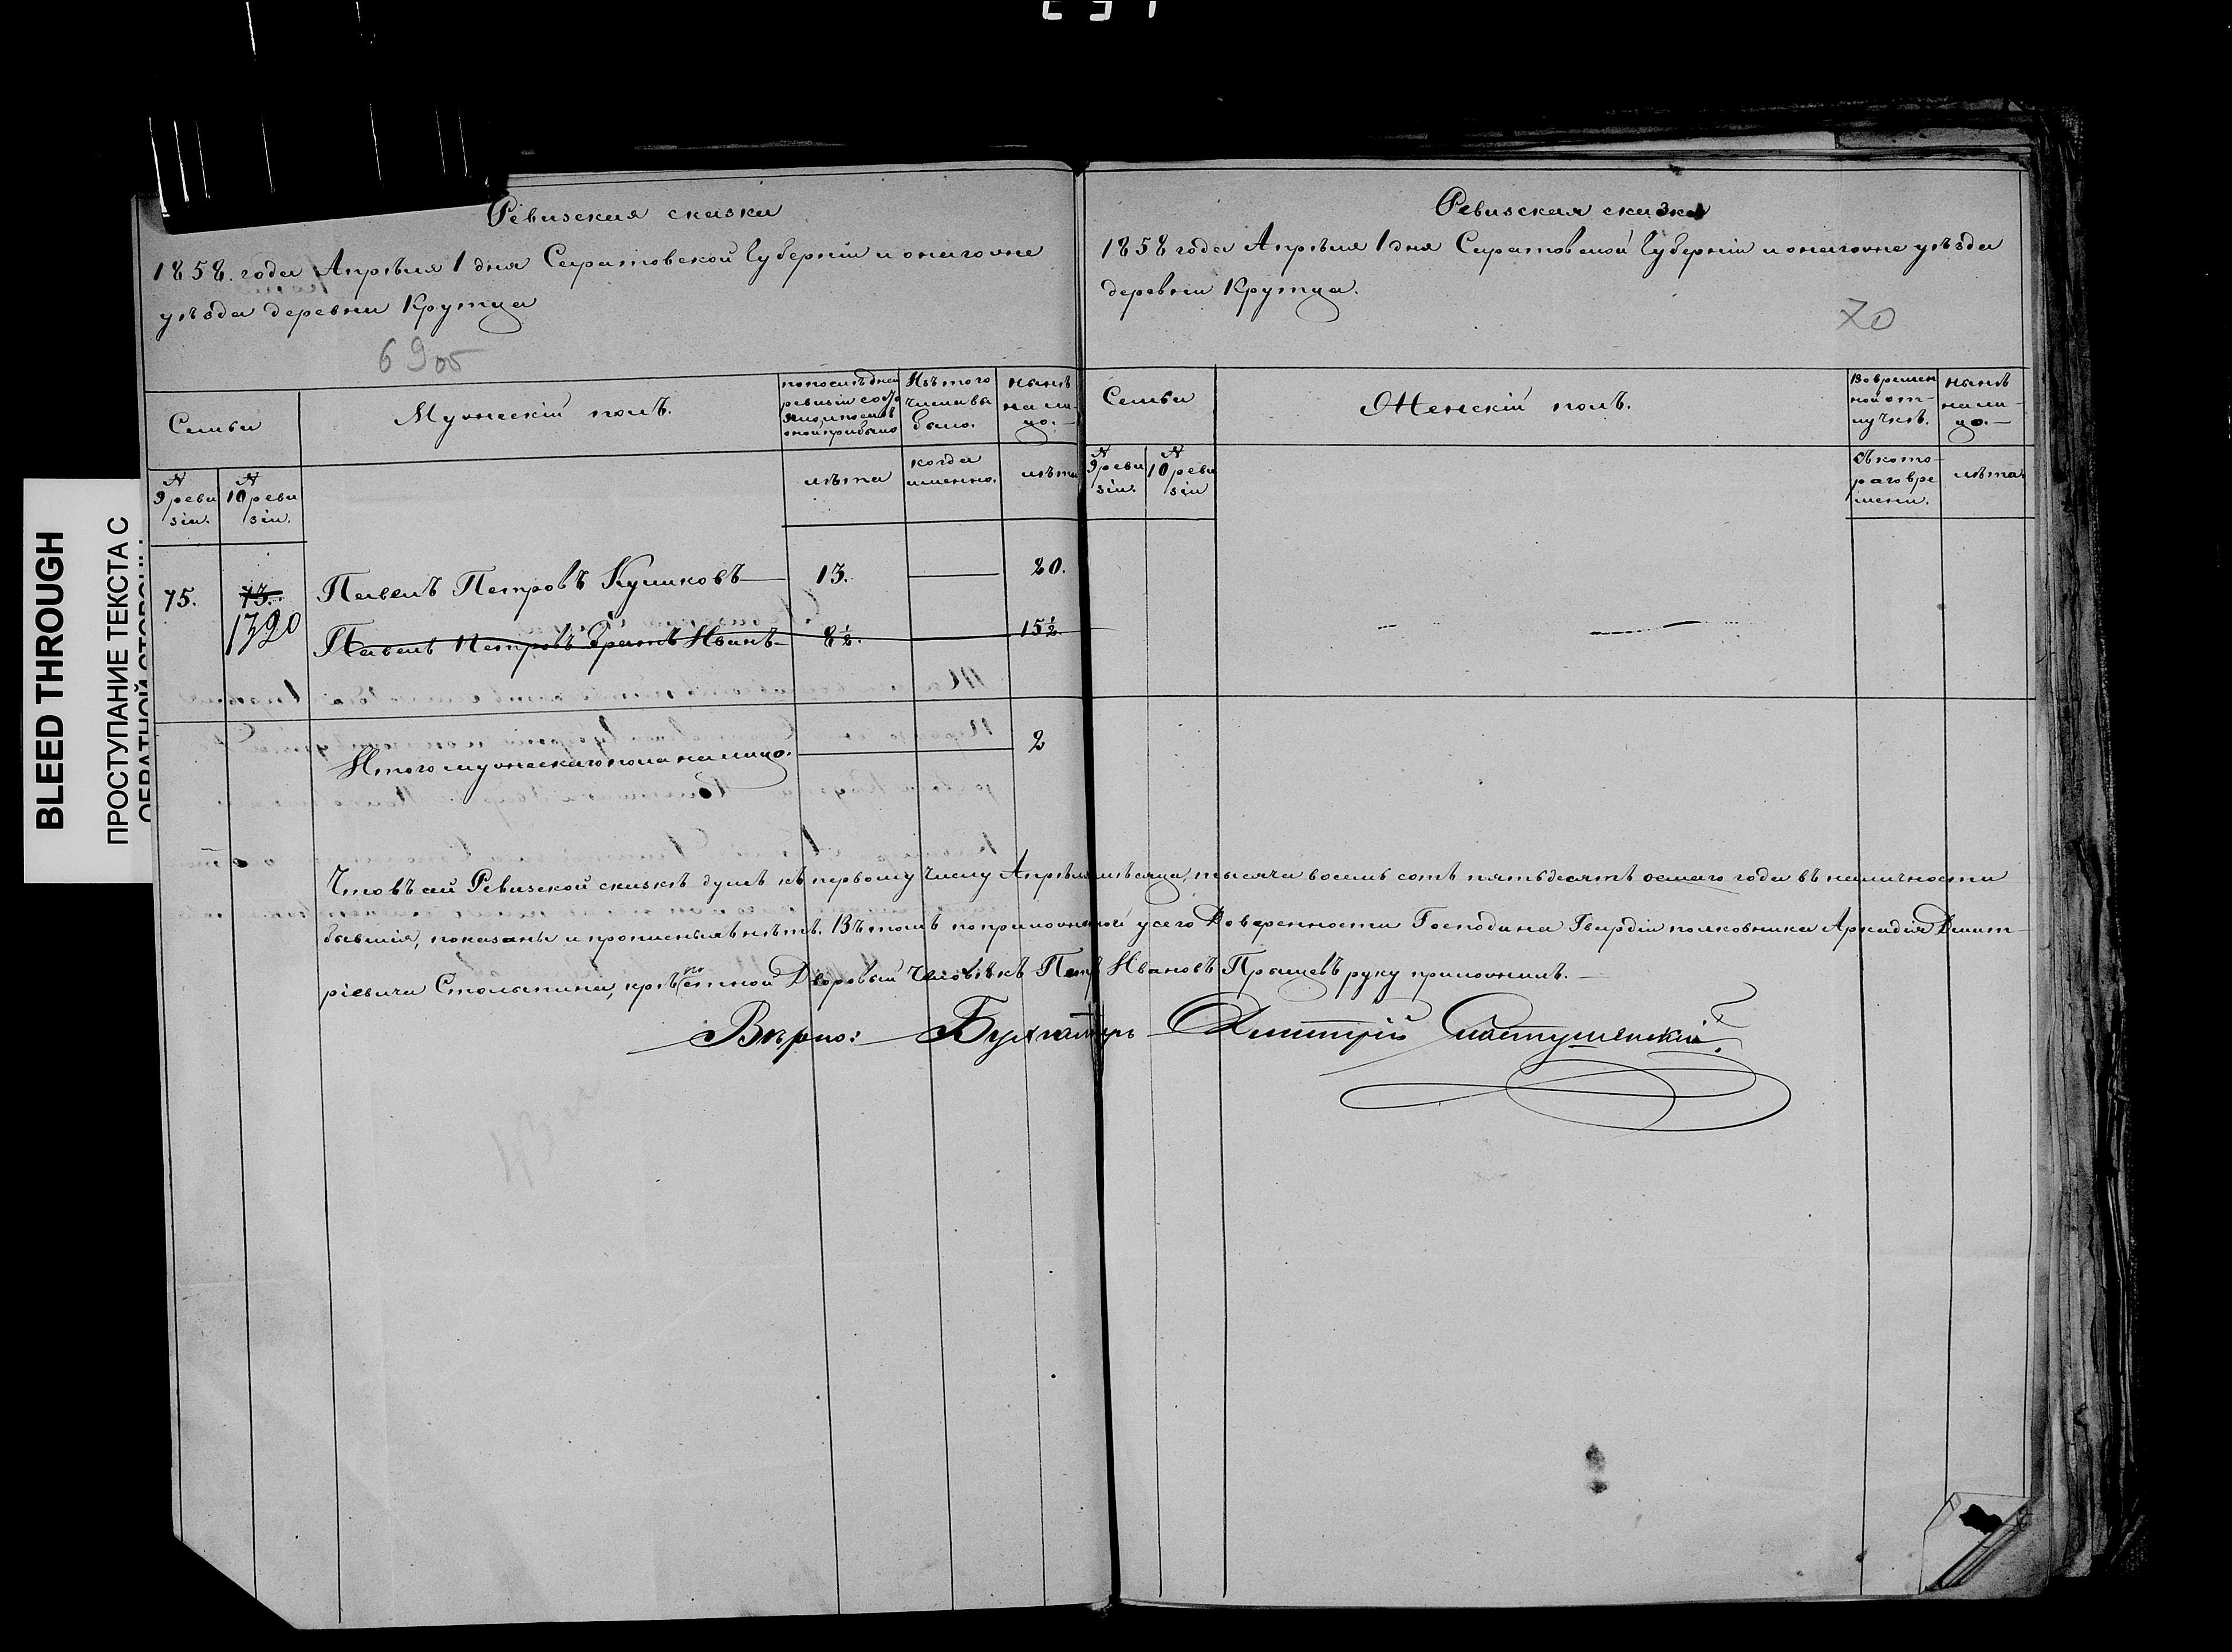 BLEED THROUGH
ПРОСТУПАНИЕ ТЕКСТА С
ОБРАТНОЙ СТОРОНЫ
Ревизская сказка
1858. года Апрѣля 1 дня Саратовской Губерніи и онагожне
уѣзда деревни Крутца
69 об
Семьи
Мужескій полъ.
по послѣдней
ревизіи состо
яло и послѣ
оной прибыло
Изъ того
числа вы
было.
нынѣ
на ли-
цо.
№
9 реви
зіи.
№
10 реви
зіи.
лѣта
когда
именно.
лѣта
75.
73.
1320
Павелъ Петровъ Куликовъ
13.
20.
Павелъ Петровъ Братъ Иванъ
8½.
15½
Итого мужескаго пола на лицо.
2
Ревизская сказка
1858 года Апрѣля 1 дня Саратовской Губерніи и онагожне уѣзда
деревни Крутца.
70
Семьи
Женскій полъ.
Во времен
ной от-
лучкѣ.
нынѣ
на ли-
цо.
№
9 реви
зіи.
№
10 реви
зіи
Съ кото-
раго вре
мени.
лѣта
Что въ сей Ревизской сказкѣ души къ первому числу Апрѣля мѣсяца, тысяча восемь сотъ пятьдесятъ осмаго года въ наличности
бывшія, показаны и прописныхъ нѣтъ. Въ томъ по приложенной у сего Доверенности Господина Гвардіи полковника Аркадія Дмит-
ріевича Столыпина, крѣпостной Дворовый человѣкъ Петръ Ивановъ Прыщевъ руку приложилъ.
Вѣрно: Бухгалтеръ Дмитрій